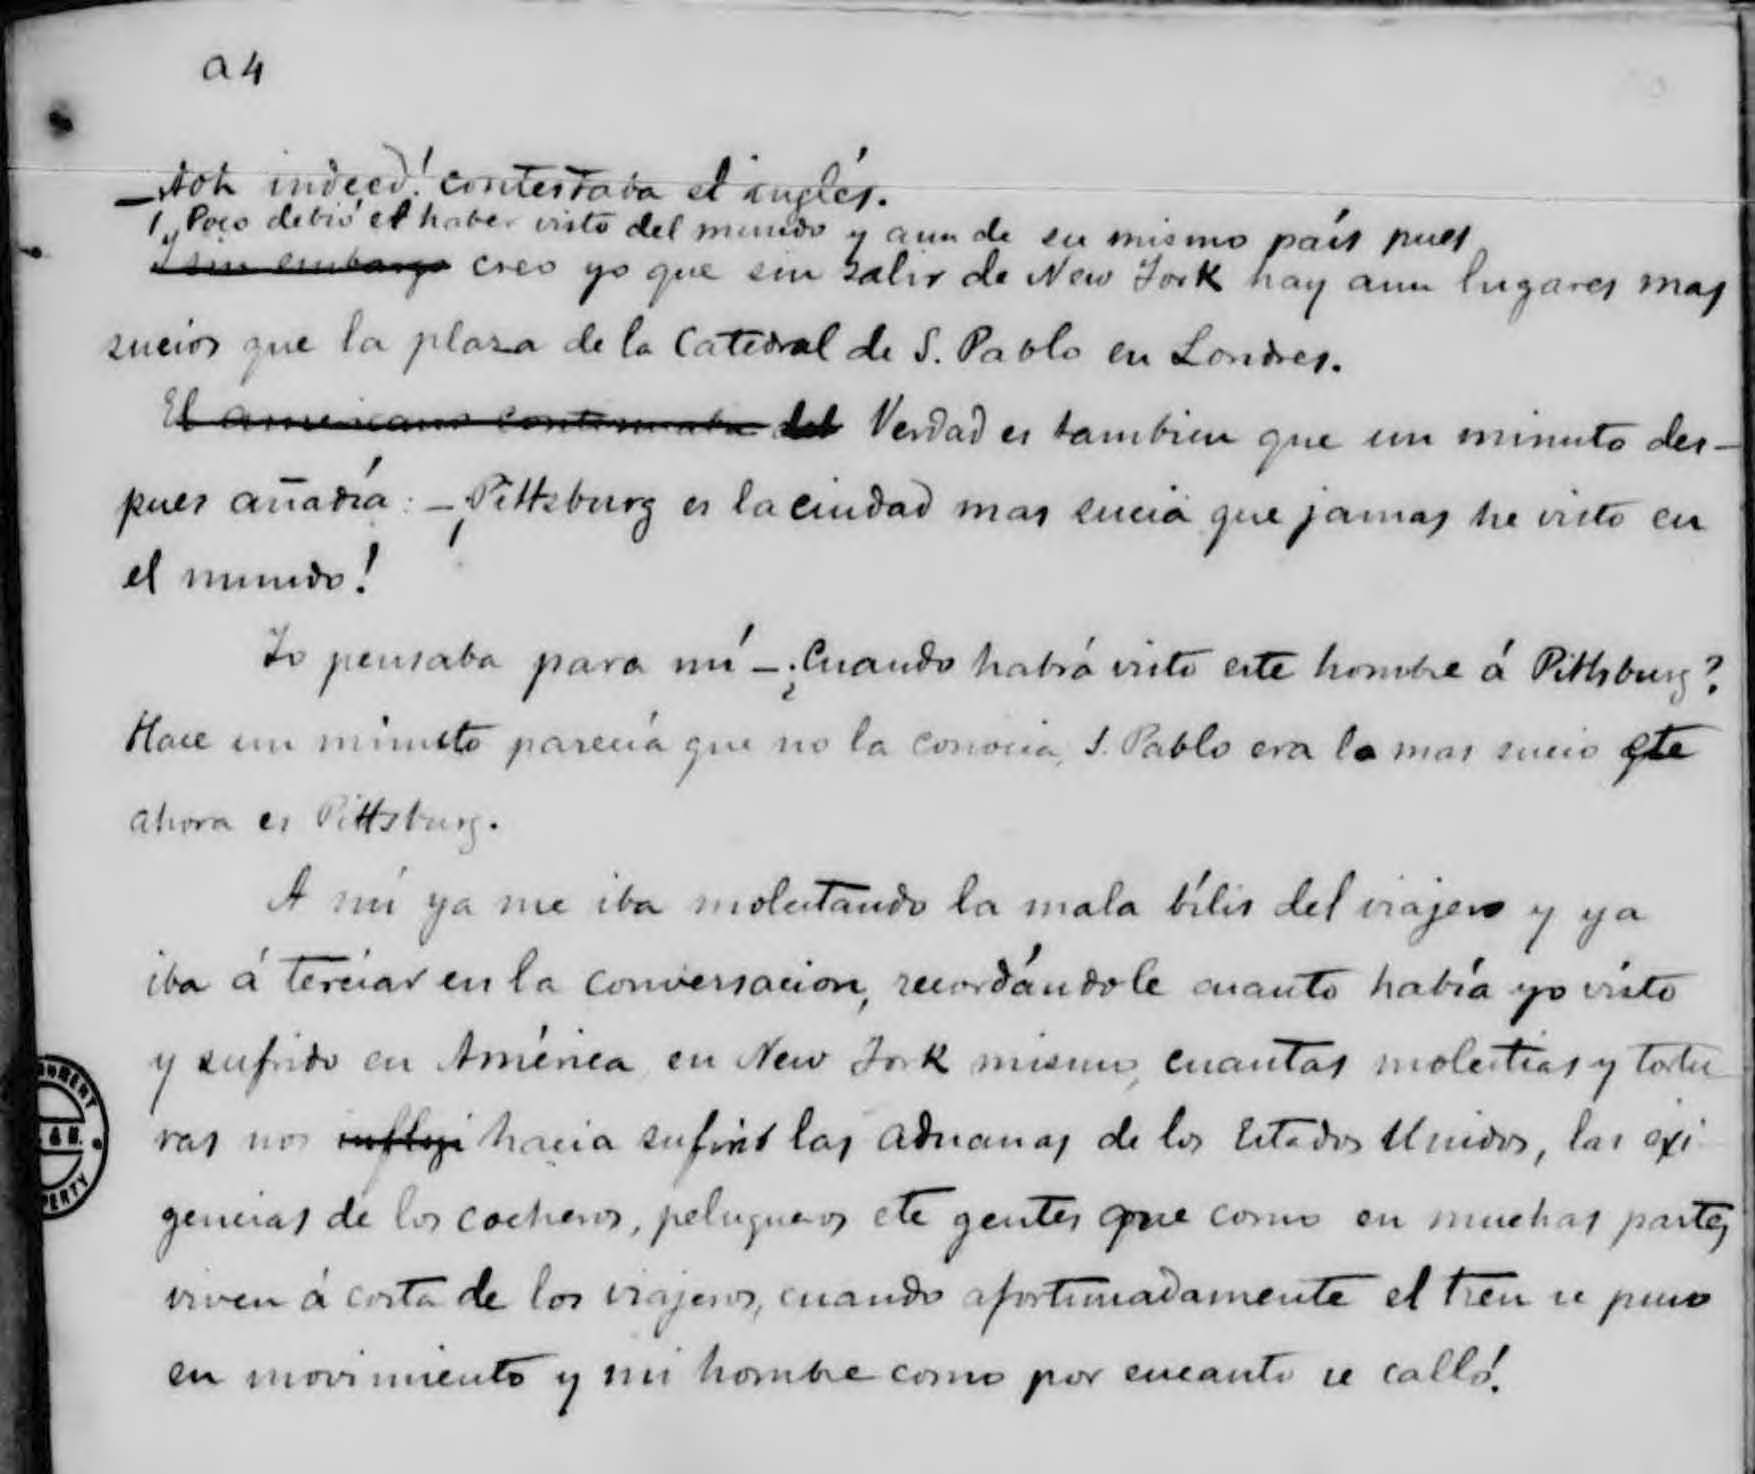 a4
— Aoh indeed! contestaba el inglés.
Poco debió el haber visto del mundo y aun de su mismo país pues
y sin embargo creo yo que sin salir de New York hay aun lugares mas
sucios que la plaza de la Catedral de S. Pablo en Londres.
El americano continuaba del Verdad es tambien que un minuto des-
pues añadía: — ¡Pittsburg es la ciudad mas sucia que jamas he visto en
el mundo!
Yo pensaba para mí — ¿Cuando habrá visto este hombre á Pittsburg?
Hace un minuto parecía que no la conocia, S. Pablo era lo mas sucio
ahora es Pittsburg.
A mí ya me iba molestando la mala bílis del viajero y ya
iba á terciar en la conversacion, recordándole cuanto había yo visto
y sufrido en América, en New York mismo, cuantas molestias y tortu
ras nos hacia sufrir las aduanas de los Estados Unidos, las exi
gencias de los cocheros, peluqueros etc gentes que como en muchas partes
viven á costa de los viajeros, cuando afortunadamente el tren se puso
en movimiento y mi hombre como por encanto se calló!
PERTY